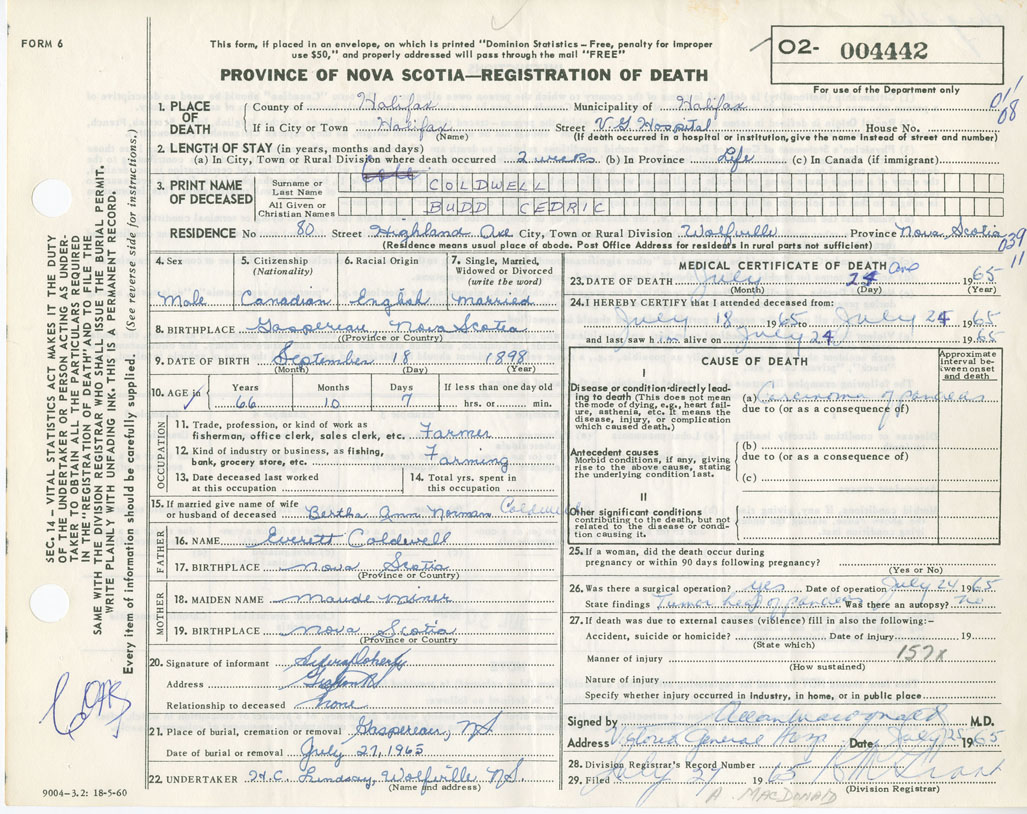 FORM 6
This form, if placed in an envelope, on which is printed "Dominion Statistics – Free, penalty for improper
use $50," and properly addressed will pass through the mail "FREE"
PROVINCE OF NOVA SCOTIA—REGISTRATION OF DEATH
02- 004442
For use of the Department only
01/08
1. PLACE OF DEATH
County of Halifax Municipality of Halifax
If in City or Town Halifax Street V.G Hospital House No.
(Name) (If death occurred in a hospital or institution, give the name instead of street and number)
2. LENGTH OF STAY (in years, months and days)
(a) In City, Town or Rural Division where death occurred 2 weeks (b) In Province Life (c) In Canada (if immigrant)
3. PRINT NAME OF DECEASED
Surname or Last Name COLDWELL
All Given or Christian Names BUDD CEDRIC
RESIDENCE No 80 Street Highland Ave City, Town or Rural Division Wolfville Province Nova Scotia
(Residence means usual place of abode. Post Office Address for residents in rural parts not sufficient)
039
11
4. Sex
Male
5. Citizenship (Nationality)
Canadian
6. Racial Origin
English
7. Single, Married, Widowed or Divorced (write the word)
Married
8. BIRTHPLACE Gaspereau, Nova Scotia
(Province or Country)
9. DATE OF BIRTH September 18 1898
(Month) (Day) (Year)
10. AGE in Years Months Days If less than one day old
66 10 7 hrs. or min.
OCCUPATION
11. Trade, profession, or kind of work as
fisherman, office clerk, sales clerk, etc. Farmer
12. Kind of industry or business, as fishing,
bank, grocery store, etc. Farming
13. Date deceased last worked at this occupation
14. Total yrs. spent in this occupation
15. If married give name of wife
or husband of deceased Bertha Ann Norman Coldwell
FATHER
16. NAME Everett Coldwell
17. BIRTHPLACE Nova Scotia
(Province or Country)
MOTHER
18. MAIDEN NAME Maude Miner
19. BIRTHPLACE Nova Scotia
(Province or Country)
20. Signature of informant
Address
Relationship to deceased None
21. Place of burial, cremation or removal Gaspereau, N.S.
Date of burial or removal July 27, 1965
22. UNDERTAKER Lindsay, Wolfville N.S.
(Name and address)
MEDICAL CERTIFICATE OF DEATH
23. DATE OF DEATH July 24 1965
(Month) (Day) (Year)
24. I HEREBY CERTIFY that I attended deceased from:
July 18 1965 to July 24 1965
and last saw him alive on July 24 1965
CAUSE OF DEATH
Approximate interval between onset and death
I
Disease or condition directly leading to death (This does not mean the mode of dying, e.g., heart failure, asthenia, etc. It means the disease, injury, or complication which caused death.)
(a) Carcinoma of pancreas
due to (or as a consequence of)
Antecedent causes
Morbid conditions, if any, giving rise to the above cause, stating the underlying condition last.
(b)
due to (or as a consequence of)
(c)
II
Other significant conditions
contributing to the death, but not related to the disease or condition causing it.
25. If a woman, did the death occur during
pregnancy or within 90 days following pregnancy?
(Yes or No)
26. Was there a surgical operation? yes Date of operation July 24 1965
State findings Tumor head of pancreas Was there an autopsy? no
27. If death was due to external causes (violence) fill in also the following:–
Accident, suicide or homicide? Date of injury 19
(State which)
Manner of injury 157x
(How sustained)
Nature of injury
Specify whether injury occurred in industry, in home, or in public place
Signed by Allan MacDonald M.D.
Address Victoria General Hosp Date July 25 1965
28. Division Registrar's Record Number
29. Filed July 27 1965
(Division Registrar)
A. MACDONALD
SEC. 14 – VITAL STATISTICS ACT MAKES IT THE DUTY
OF THE UNDERTAKER OR PERSON ACTING AS UNDER-
TAKER TO OBTAIN ALL THE PARTICULARS REQUIRED
IN THE "REGISTRATION OF DEATH" AND TO FILE THE
SAME WITH THE DIVISION REGISTRAR WHO SHALL ISSUE THE BURIAL PERMIT.
WRITE PLAINLY WITH UNFADING INK. THIS IS A PERMANENT RECORD.
Every item of information should be carefully supplied. (See reverse side for instructions.)
9004–3.2: 18-5-60